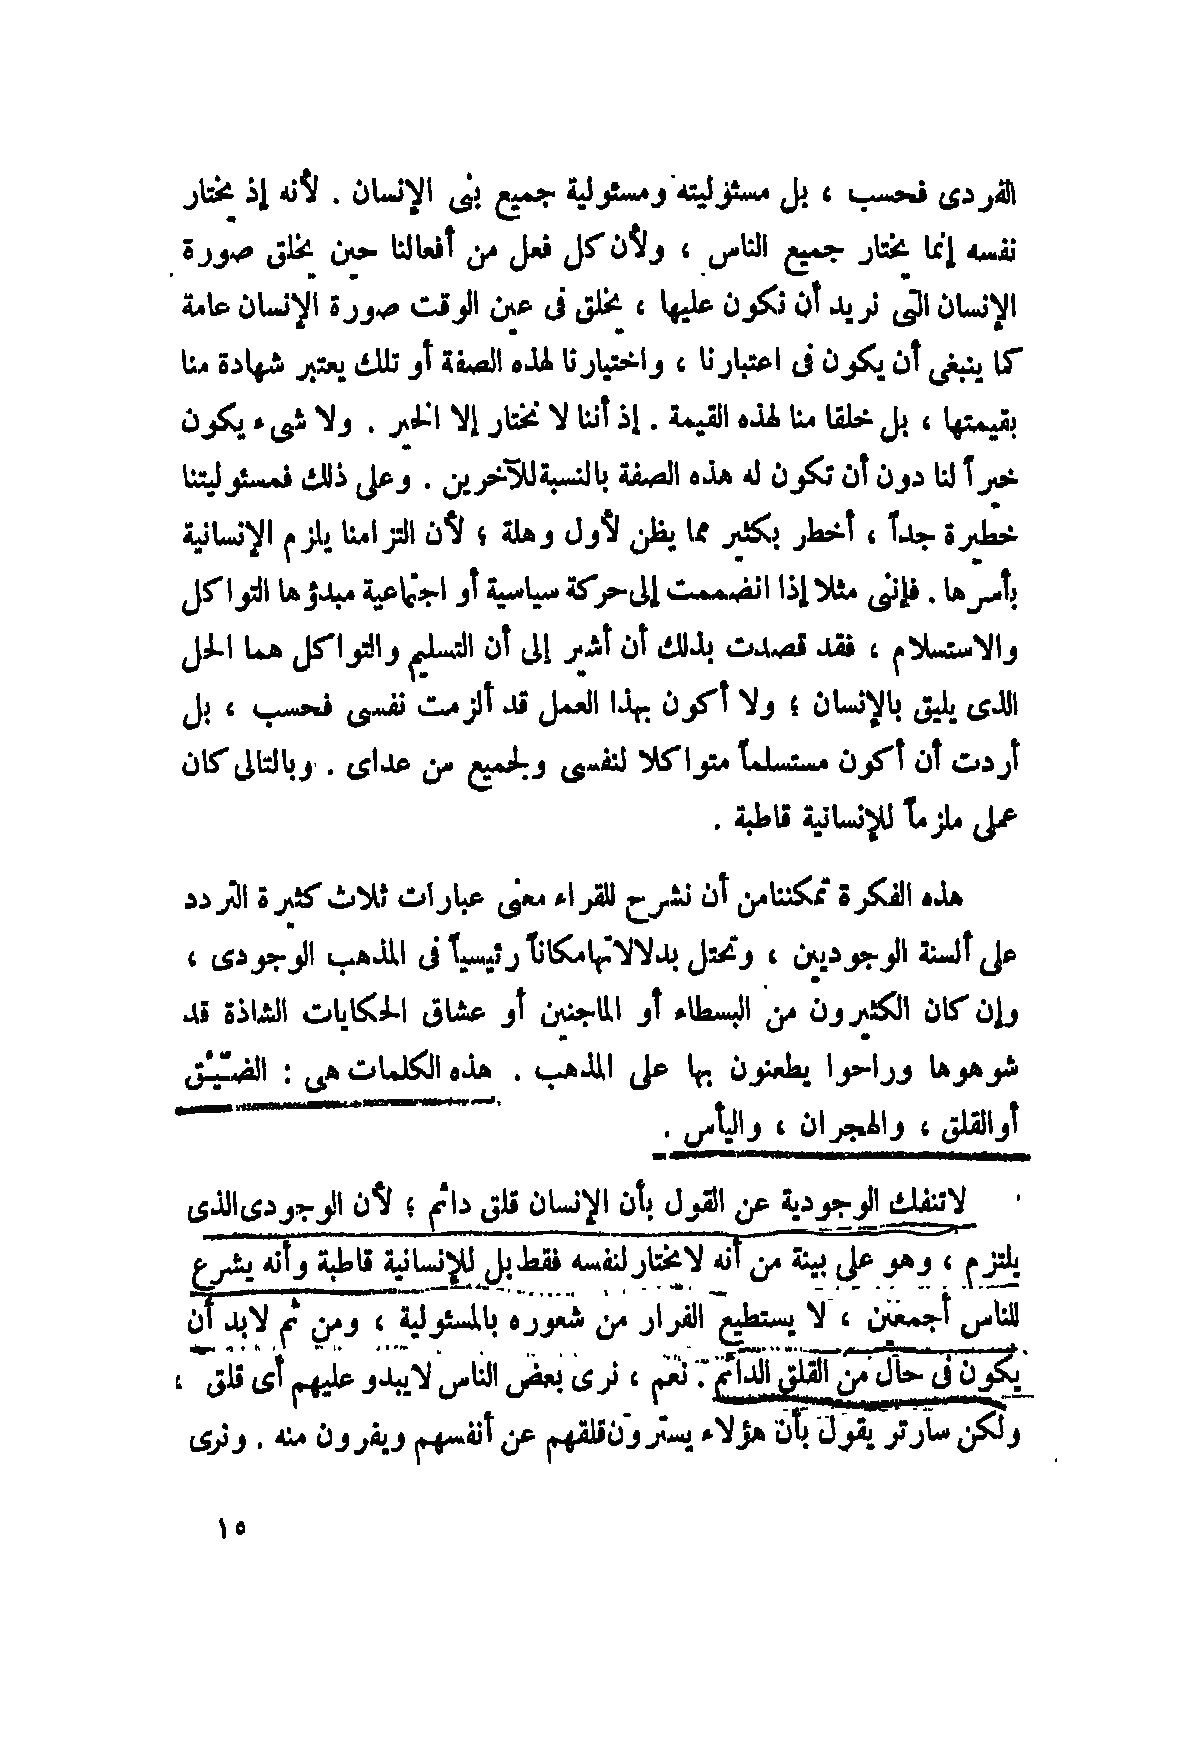 الفردى فحسب ، بل مسئوليته ومسئولية جميع بنى الإنسان . لأنه إذ يختار
نفسه إنما يختار جميع الناس ، ولأن كل فعل من أفعالنا حين يخلق صورة
الإنسان التى نريد أن نكون عليها ، يخلق فى عين الوقت صورة الإنسان عامة
كما ينبغى أن يكون فى اعتبارنا ، واختيارنا لهذه الصفة أو تلك يعتبر شهادة منا
بقيمتها ، بل خلقا منا لهذه القيمة . إذ أننا لا نختار إلا الخير . ولا شىء يكون
خيراً لنا دون أن تكون له هذه الصفة بالنسبة للآخرين . وعلى ذلك فمسئوليتنا
خطيرة جداً ، أخطر بكثير مما يظن لأول وهلة ؛ لأن التزامنا يلزم الإنسانية
بأسرها . فإننى مثلا إذا انضممت إلى حركة سياسية أو اجتماعية مبدؤها التواكل
والاستسلام ، فقد قصدت بذلك أن أشير إلى أن التسليم والتواكل هما الحل
الذى يليق بالإنسان ؛ ولا أكون بهذا العمل قد ألزمت نفسى فحسب ، بل
أردت أن أكون مستسلماً متواكلا لنفسى ولجميع من عداى . وبالتالى كان
عملى ملزماً للإنسانية قاطبة .
هذه الفكرة تمكننا من أن نشرح للقراء معنى عبارات ثلاث كثيرة التردد
على ألسنة الوجوديين ، وتحتل بدلالاتها مكاناً رئيسياً فى المذهب الوجودى ،
وإن كان الكثيرون من البسطاء أو الماجنين أو عشاق الحكايات الشاذة قد
شوهوها وراحوا يطعنون بها على المذهب . هذه الكلمات هى : الضيّق
أو القلق ، والهجران ، واليأس .
لا تنفك الوجودية عن القول بأن الإنسان قلق دائم ؛ لأن الوجودى الذى
يلتزم ، وهو على بينة من أنه لا يختار لنفسه فقط بل للإنسانية قاطبة وأنه يشرع
للناس أجمعين ، لا يستطيع الفرار من شعوره بالمسئولية ، ومن ثم لابد أن
يكون فى حال من القلق الدائم . نعم ، نرى بعض الناس لا يبدو عليهم أى قلق ،
ولكن سارتر يقول بأن هؤلاء يسترون قلقهم عن أنفسهم ويفرون منه . ونرى
١٥